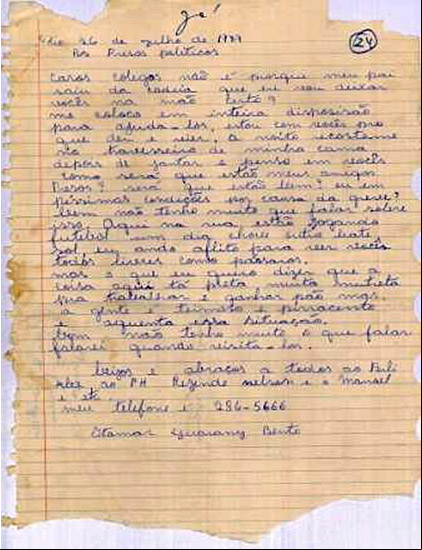 já
Rio 26 de julho de 1979
24
Aos Presos políticos
Caros colegos não é porque meu pai
saiu da cadeia que eu vou deixar
vocês na mão certo?
me coloco em inteira disposisão
para ajuda-los, estou com vocês pro
que der e vier, a noite recosto-me
no travesseiro de minha cama
depois de jantar e penso em vocês
como será que estão meus amigos
Presos? será que estão bem? ou em
péssimas condições por causa da greve?
bem não tenho muito que falar sobre
isso. Aqui na rua estão jogando
futebol um dia chove outro bate
sol, eu ando aflito para ver vocês
todos livres como pássaros.
mas o que eu quero dizer que a
coisa aqui tá preta muito
pra trabalhar e ganhar pão mas.
a gente é teimoso e pirracento
e aguenta essa situação.
bom não tenho muito o que falar
falarei quando visita-los.
beizos e abracos a todos ao
ao PH Rezende nelson e o Manoel
e etc.
meu telefone é 286-5666
Itamar Guarany Bento